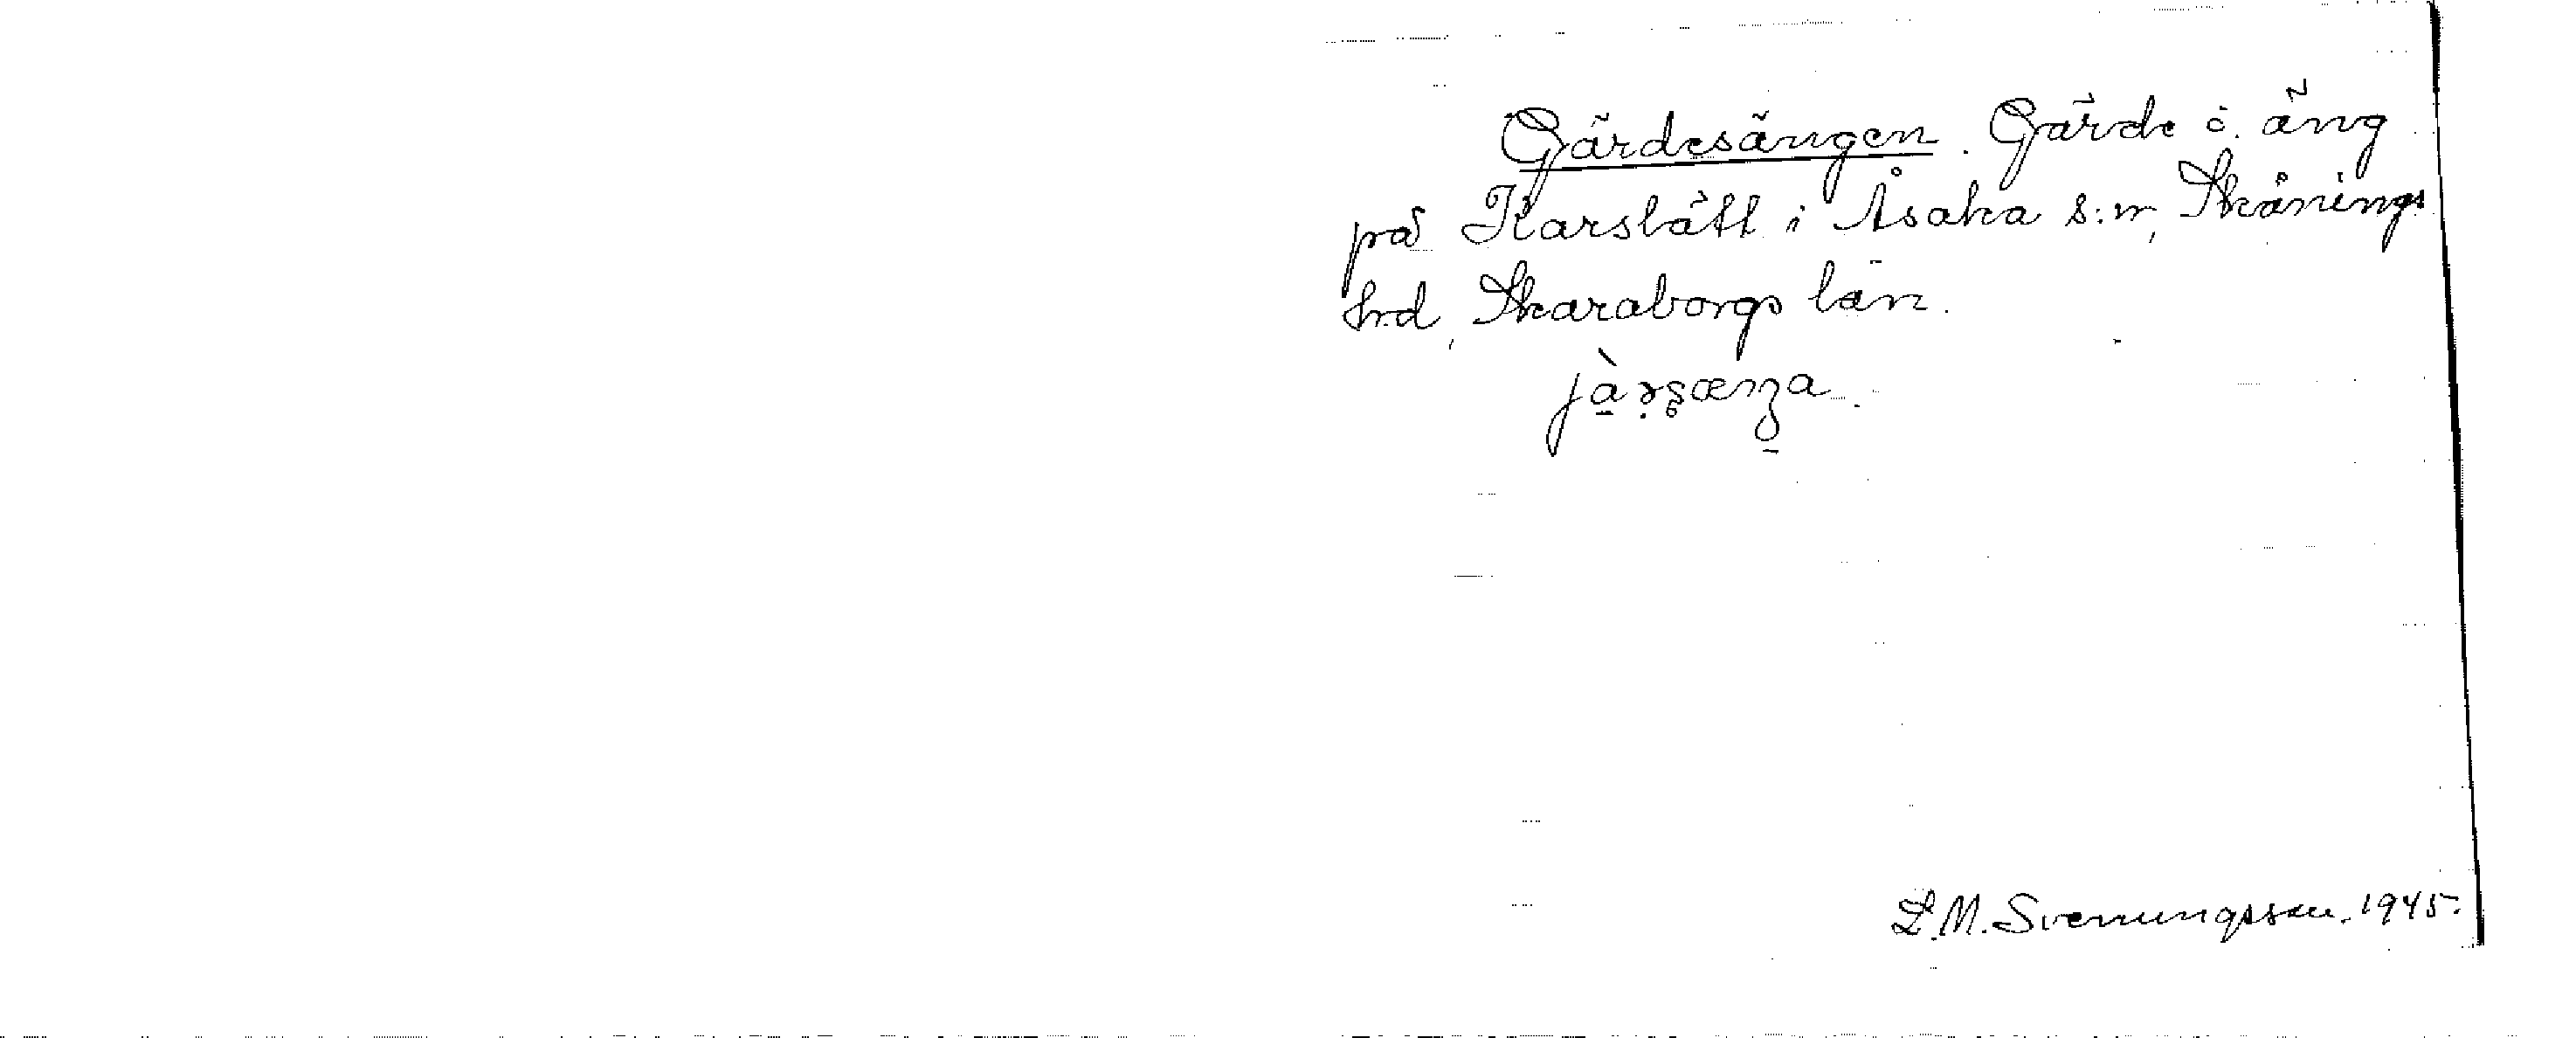 Gärdesängen. Gärde i äng
på Karslätt i Åsaka s:n, Skånings
hrd, Skaraborgs län.
S.M. Svenungsson. 1945.